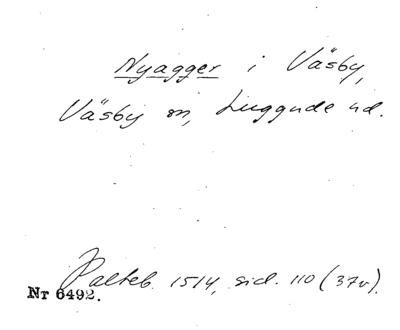 Nyagger i Väsby,
Väsby sn, Luggude hd.
Palteb. 1514, sid. 110 (37v).
Nr 6492.